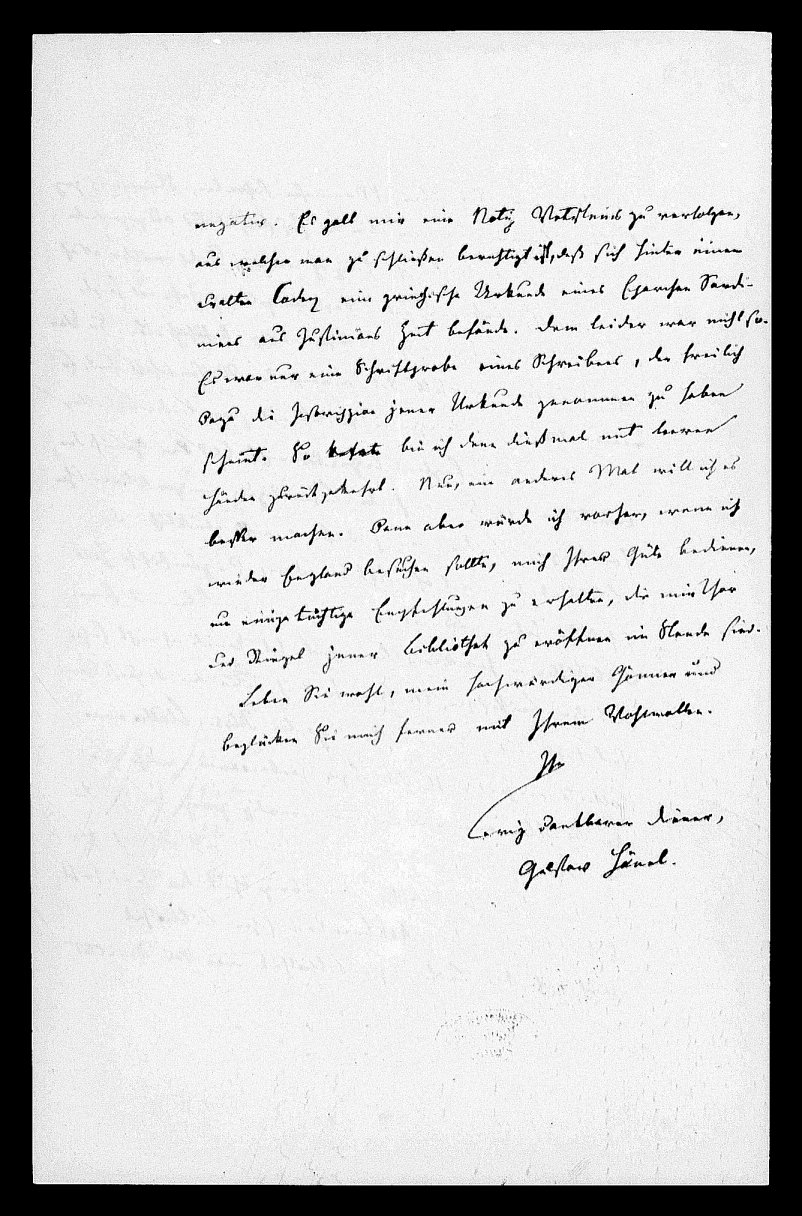 negativ. Es galt mir eine Notiz Wetsteins zu verfolgen,
aus welcher man zu schließen berechtigt ist, daß sich hinter einem
uralten Codex eine griechische Urkunde eines Exarchen Sardi-
niens aus Justinians Zeit befände. Dem leider war nicht so.
Es war nur eine Schriftprobe eines Schreibers, der freilich
dazu die Inscription jener Urkunde genommen zu haben
scheint. So bin ich denn dießmal mit leeren
Händen zurückgekehrt. Nun, ein anderes Mal will ich es
besser machen. Dann aber würde ich vorher, wenn ich
wieder England besuchen sollte, mich Ihrer Güte bedienen,
um einige tüchtige Empfehlungen zu erhalten, die mir Thor
und Riegel jener Bibliothek zu eröffnen im Stande sind.
Leben Sie wohl, mein hochwürdiger Gönner und
beglücken Sie mich ferner mit Ihrem Wohlwollen.
Ihr
ewig dankbarer Diener,
Gustav Hänel.